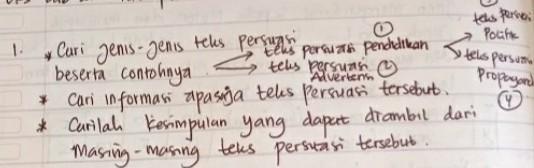 1. * Cari jenis-jenis teks persuasi
beserta contohnya
teks persuasi pendidikan ①
teks persuasi Advertensi ②
teks persuasi Politik
teks persuasi Propagand ④
* Cari informasi apasaja teks persuasi tersebut.
* Carilah kesimpulan yang dapat diambil dari
masing-masing teks persuasi tersebut.